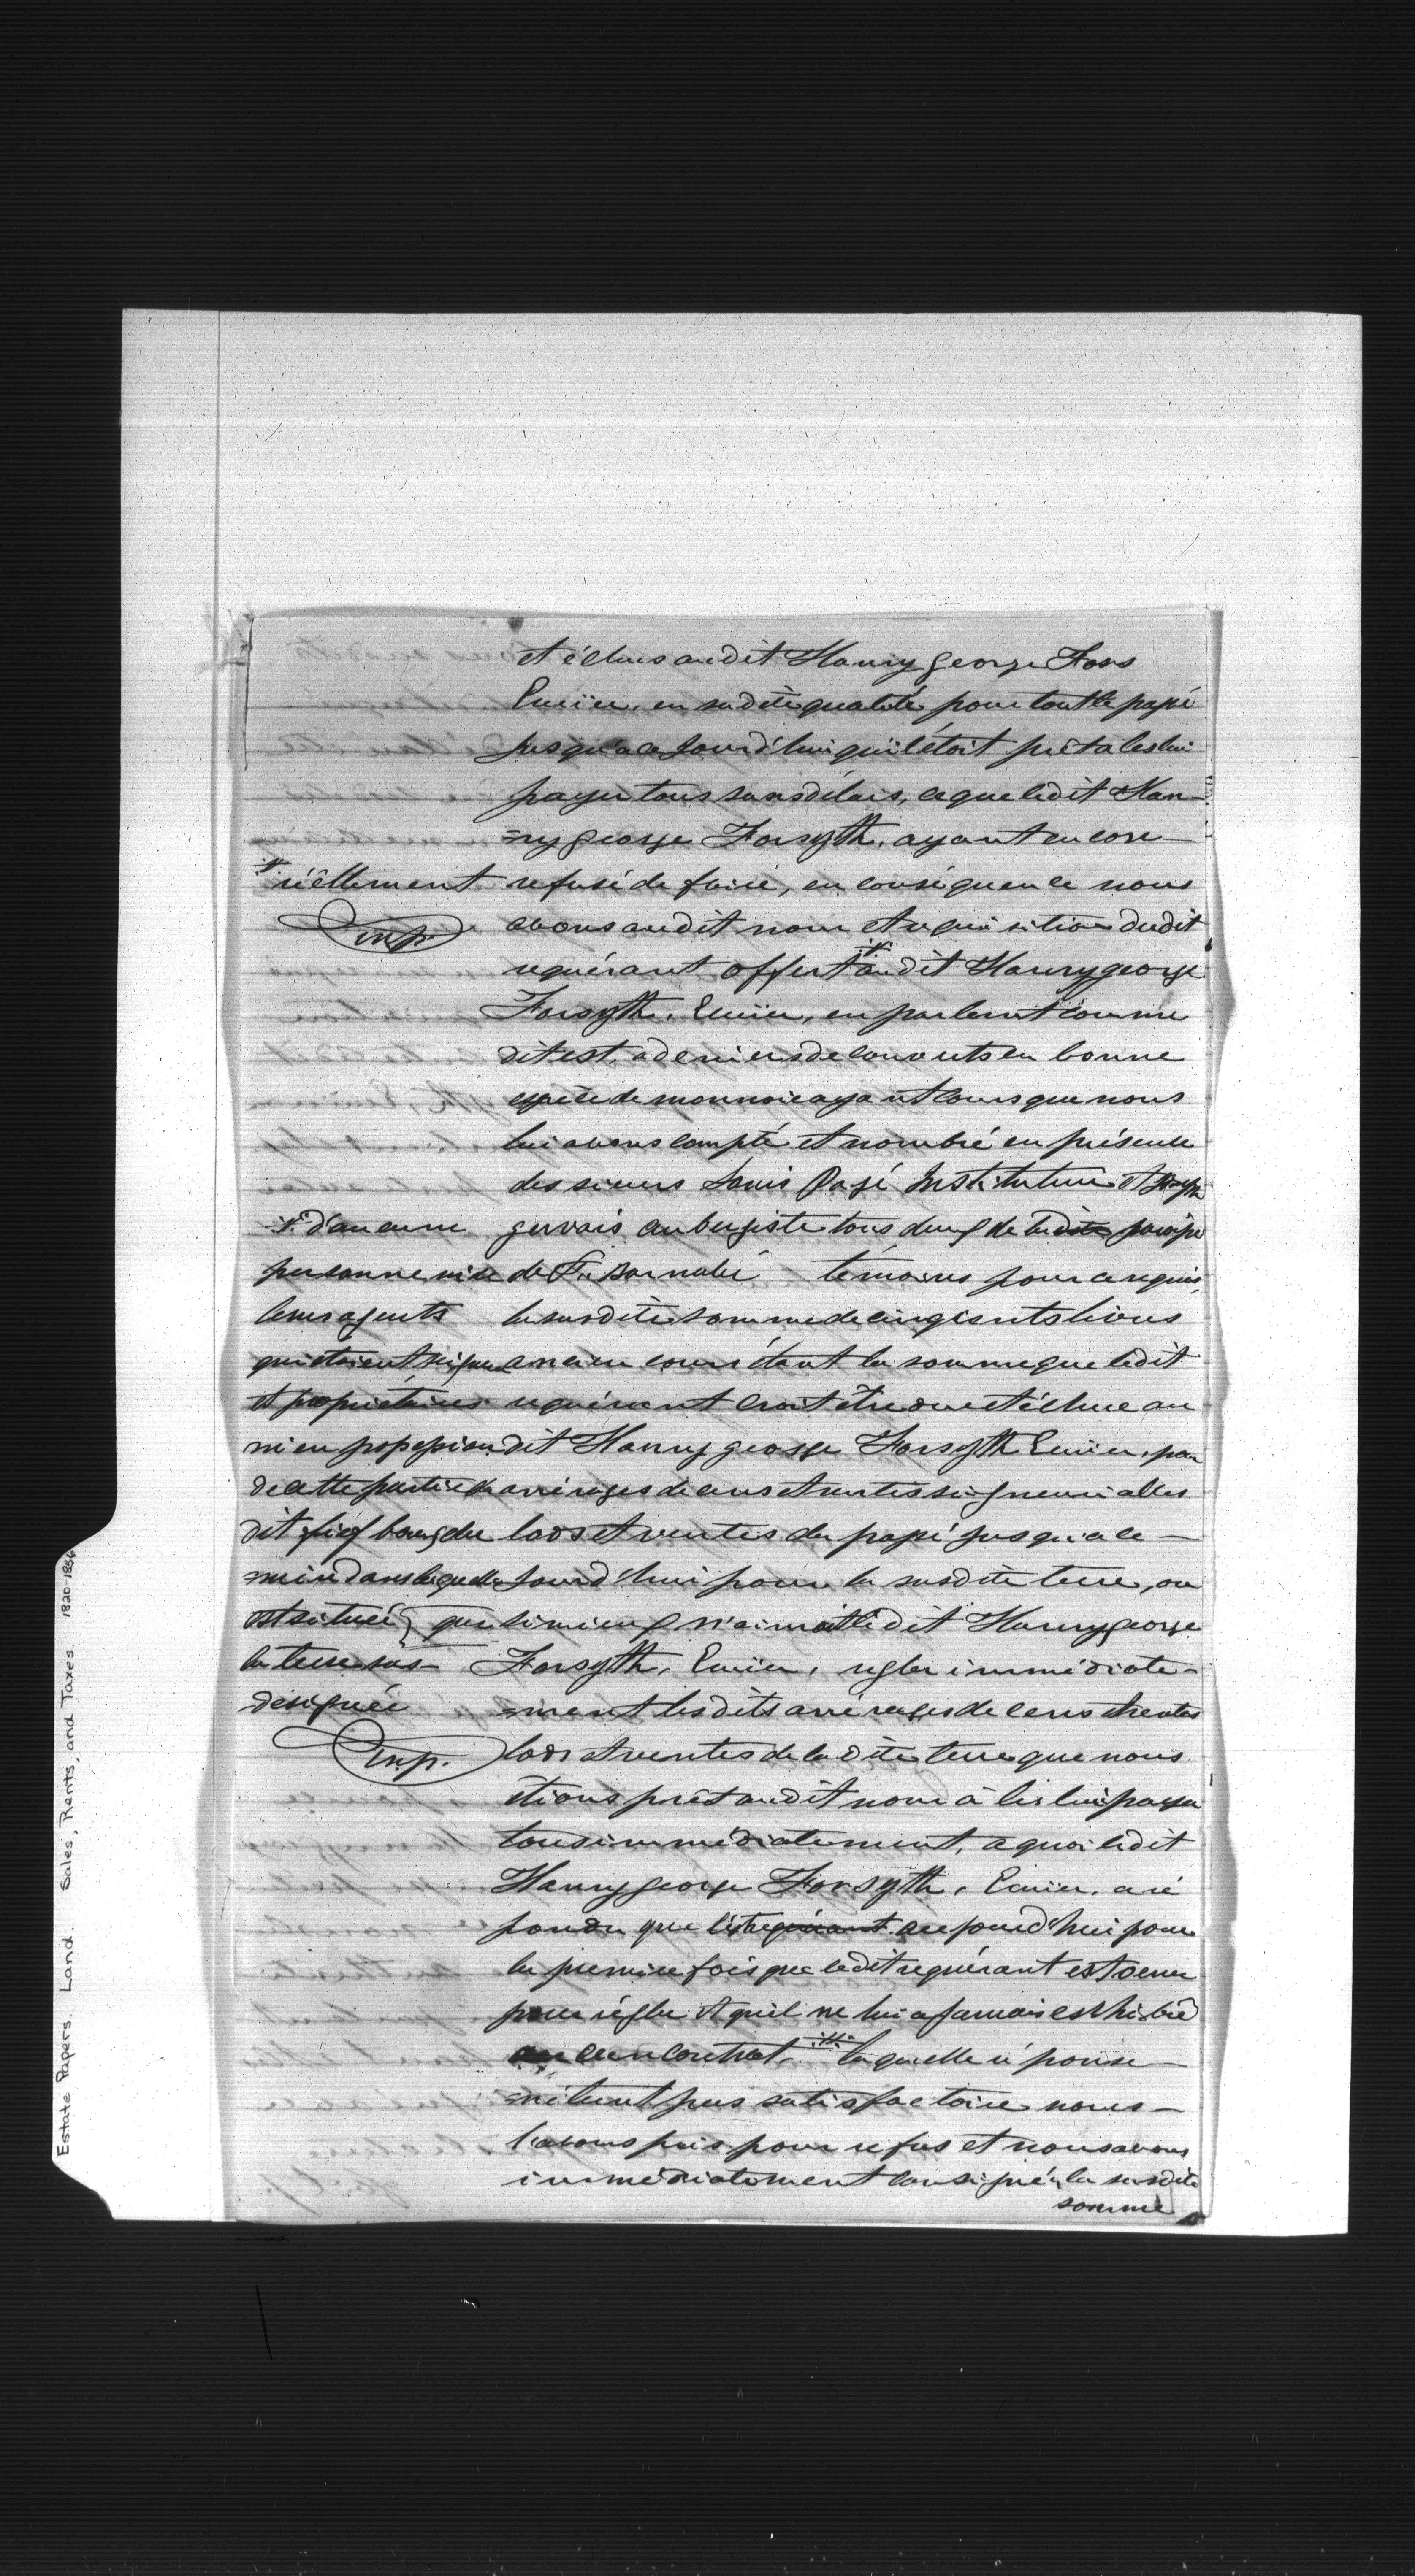 et échus audit Hanry george Fors
Ecuïer, en sudite qualité pour tout le passé
jusqu'a ce jourd'hui qu'il étoit prêt a les lui
payer tous sans délais, ce que ledit Han-
=ry george Forsyth, ayant encore
refusé de faire, en conséquence nous
avons audit nom et requisition dudit
requérant offert audit Hanry george
Forsyth, Ecuïer, en parlant comme
dit est, a deniers decouverts en bonne
espèce de monnoie ayant cours que nous
lui avons compté et nombré en présence
des sieurs Louis Pagé Instituteur et Joseph
gervais aubergiste tous deux de la dite paroisse
de St. Barnabé témoins pour ce requis,
la susdite somme de cinq cents livres
ancien cours étant la somme que ledit
requérant croit être due et échue au
dit Hanry george Forsyth Ecuïer, par
arrérages de cens et rentes seigneurialles
lods et ventes du passé jusqu'a ce
jourd'hui pour la susdite terre, ou
que si mieux n'aimoit ledit Hanry george
Forsyth, Ecuïer, regler immédiate-
=ment lesdits arrérages de cens et rentes
lods et ventes de la dite terre que nous
étions prêt audit nom à les lui payer
tous immédiatement, a quoi ledit
Hanry george Forsyth, Ecuïer, a ré
pondu que aujourd'hui pour
la premiere fois que ledit requérant est venu
pour régler et qu'il ne lui a jamais exhibé
aucun contrat, laquelle réponse
n'étant pas satisfactoire nous
l'avons pris pour refus et nous avons
immédiatement consigné la susdite
somme
réellement
m.p.
d'aucune
personne ni de
leurs agents
qui étoient
et propriétaires
ni en possession
de cette partie du
dit fief bourgche
=min dans lequelle
est située
la terre sus-
designée
m.p.
Estate Papers. Land. Sales, Rents, and Taxes. 1820-1856